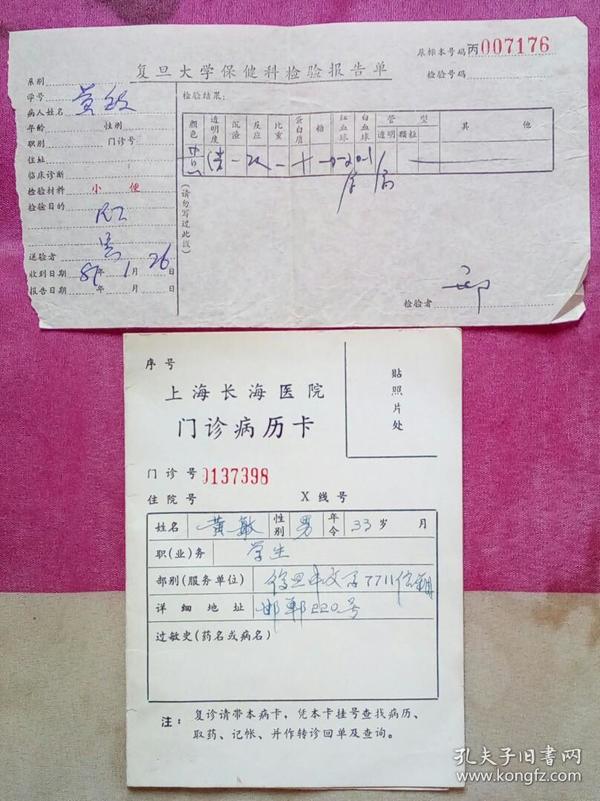 尿标本号码丙007176
复旦大学保健科检验报告单
检验号码
系别
学号
病人姓名 黄敏
年龄 性别
职别 门诊号
住址
临床诊断
检验材料 小便
检验目的
送验者
收到日期 年1月26日
报告日期 年 月 日
(请勿写过此线)
检验结果:
颜色 透明度 沉渣 反应 比重 蛋白质 糖 红血球 白血球 管型 透明 颗粒 其他
检验者
序号
贴照片处
上海长海医院
门诊病历卡
门诊号 0137398
住院号 X线号
姓名 黄敏 性别 男 年令 33岁 月
职(业)务 学生
部别(服务单位) 复旦中文系7711信箱
详细地址 邯郸220号
过敏史(药名或病名)
注: 复诊请带本病卡,凭本卡挂号查找病历、
取药、记帐、并作转诊回单及查询。
孔夫子旧书网
www.kongfz.com